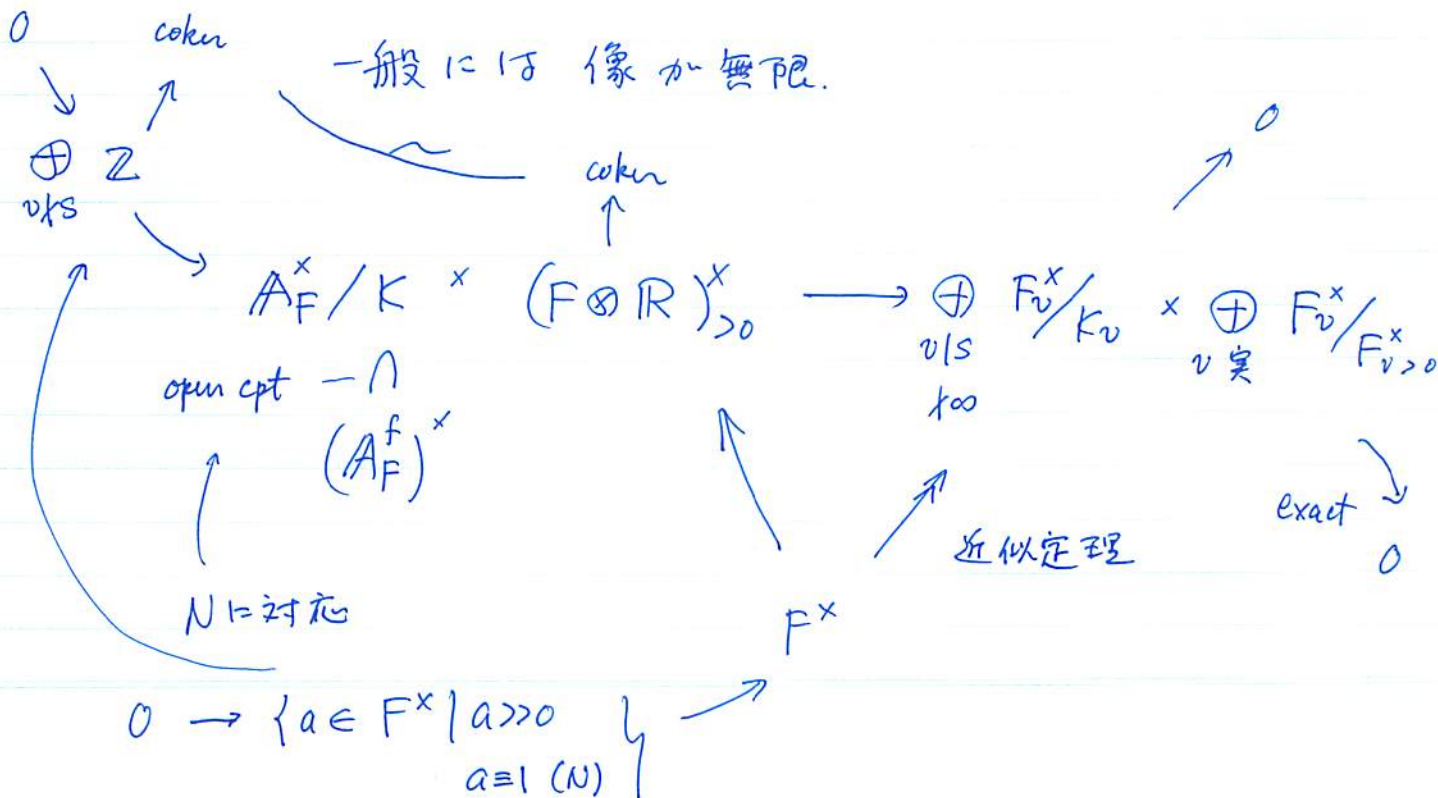 0 coker 一般には 像が無限.
⊕ ℤ
v∤S
coker
0
A_F^× / K × (F ⊗ ℝ)^×_{>0} → ⊕ F_v^×/K_v × ⊕ F_v^×/F_{v>0}^×
v|S v 実
∤∞
open cpt − ∩
(A_F^f)^×
exact
0
近似定理
Nに対応
F^×
0 → {a ∈ F^× | a>>0
a≡1 (N)}